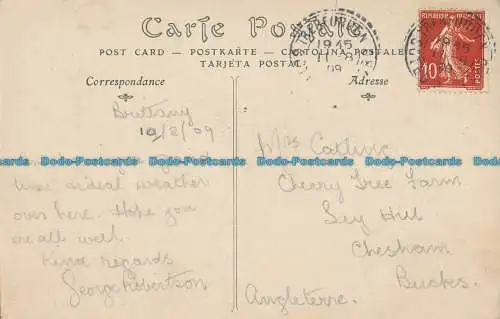 Carte Postale
POST CARD — POSTKARTE — CARTOLINA POSTALE
TARJETA POSTAL
Correspondance
Adresse
REPUBLIQUE FRANÇAISE
10
POSTE
19 45
11 - 8
09
Brittany
10/8/09
time ideal weather
over here. Hope you
are all well.
Kind regards
George Robertson
Mrs Catling
Cherry Tree Farm
Ley Hill
Chesham
Bucks.
Angleterre.
Dodo-Postcards Dodo-Postcards Dodo-Postcards Dodo-Postcards Dodo-Postcards